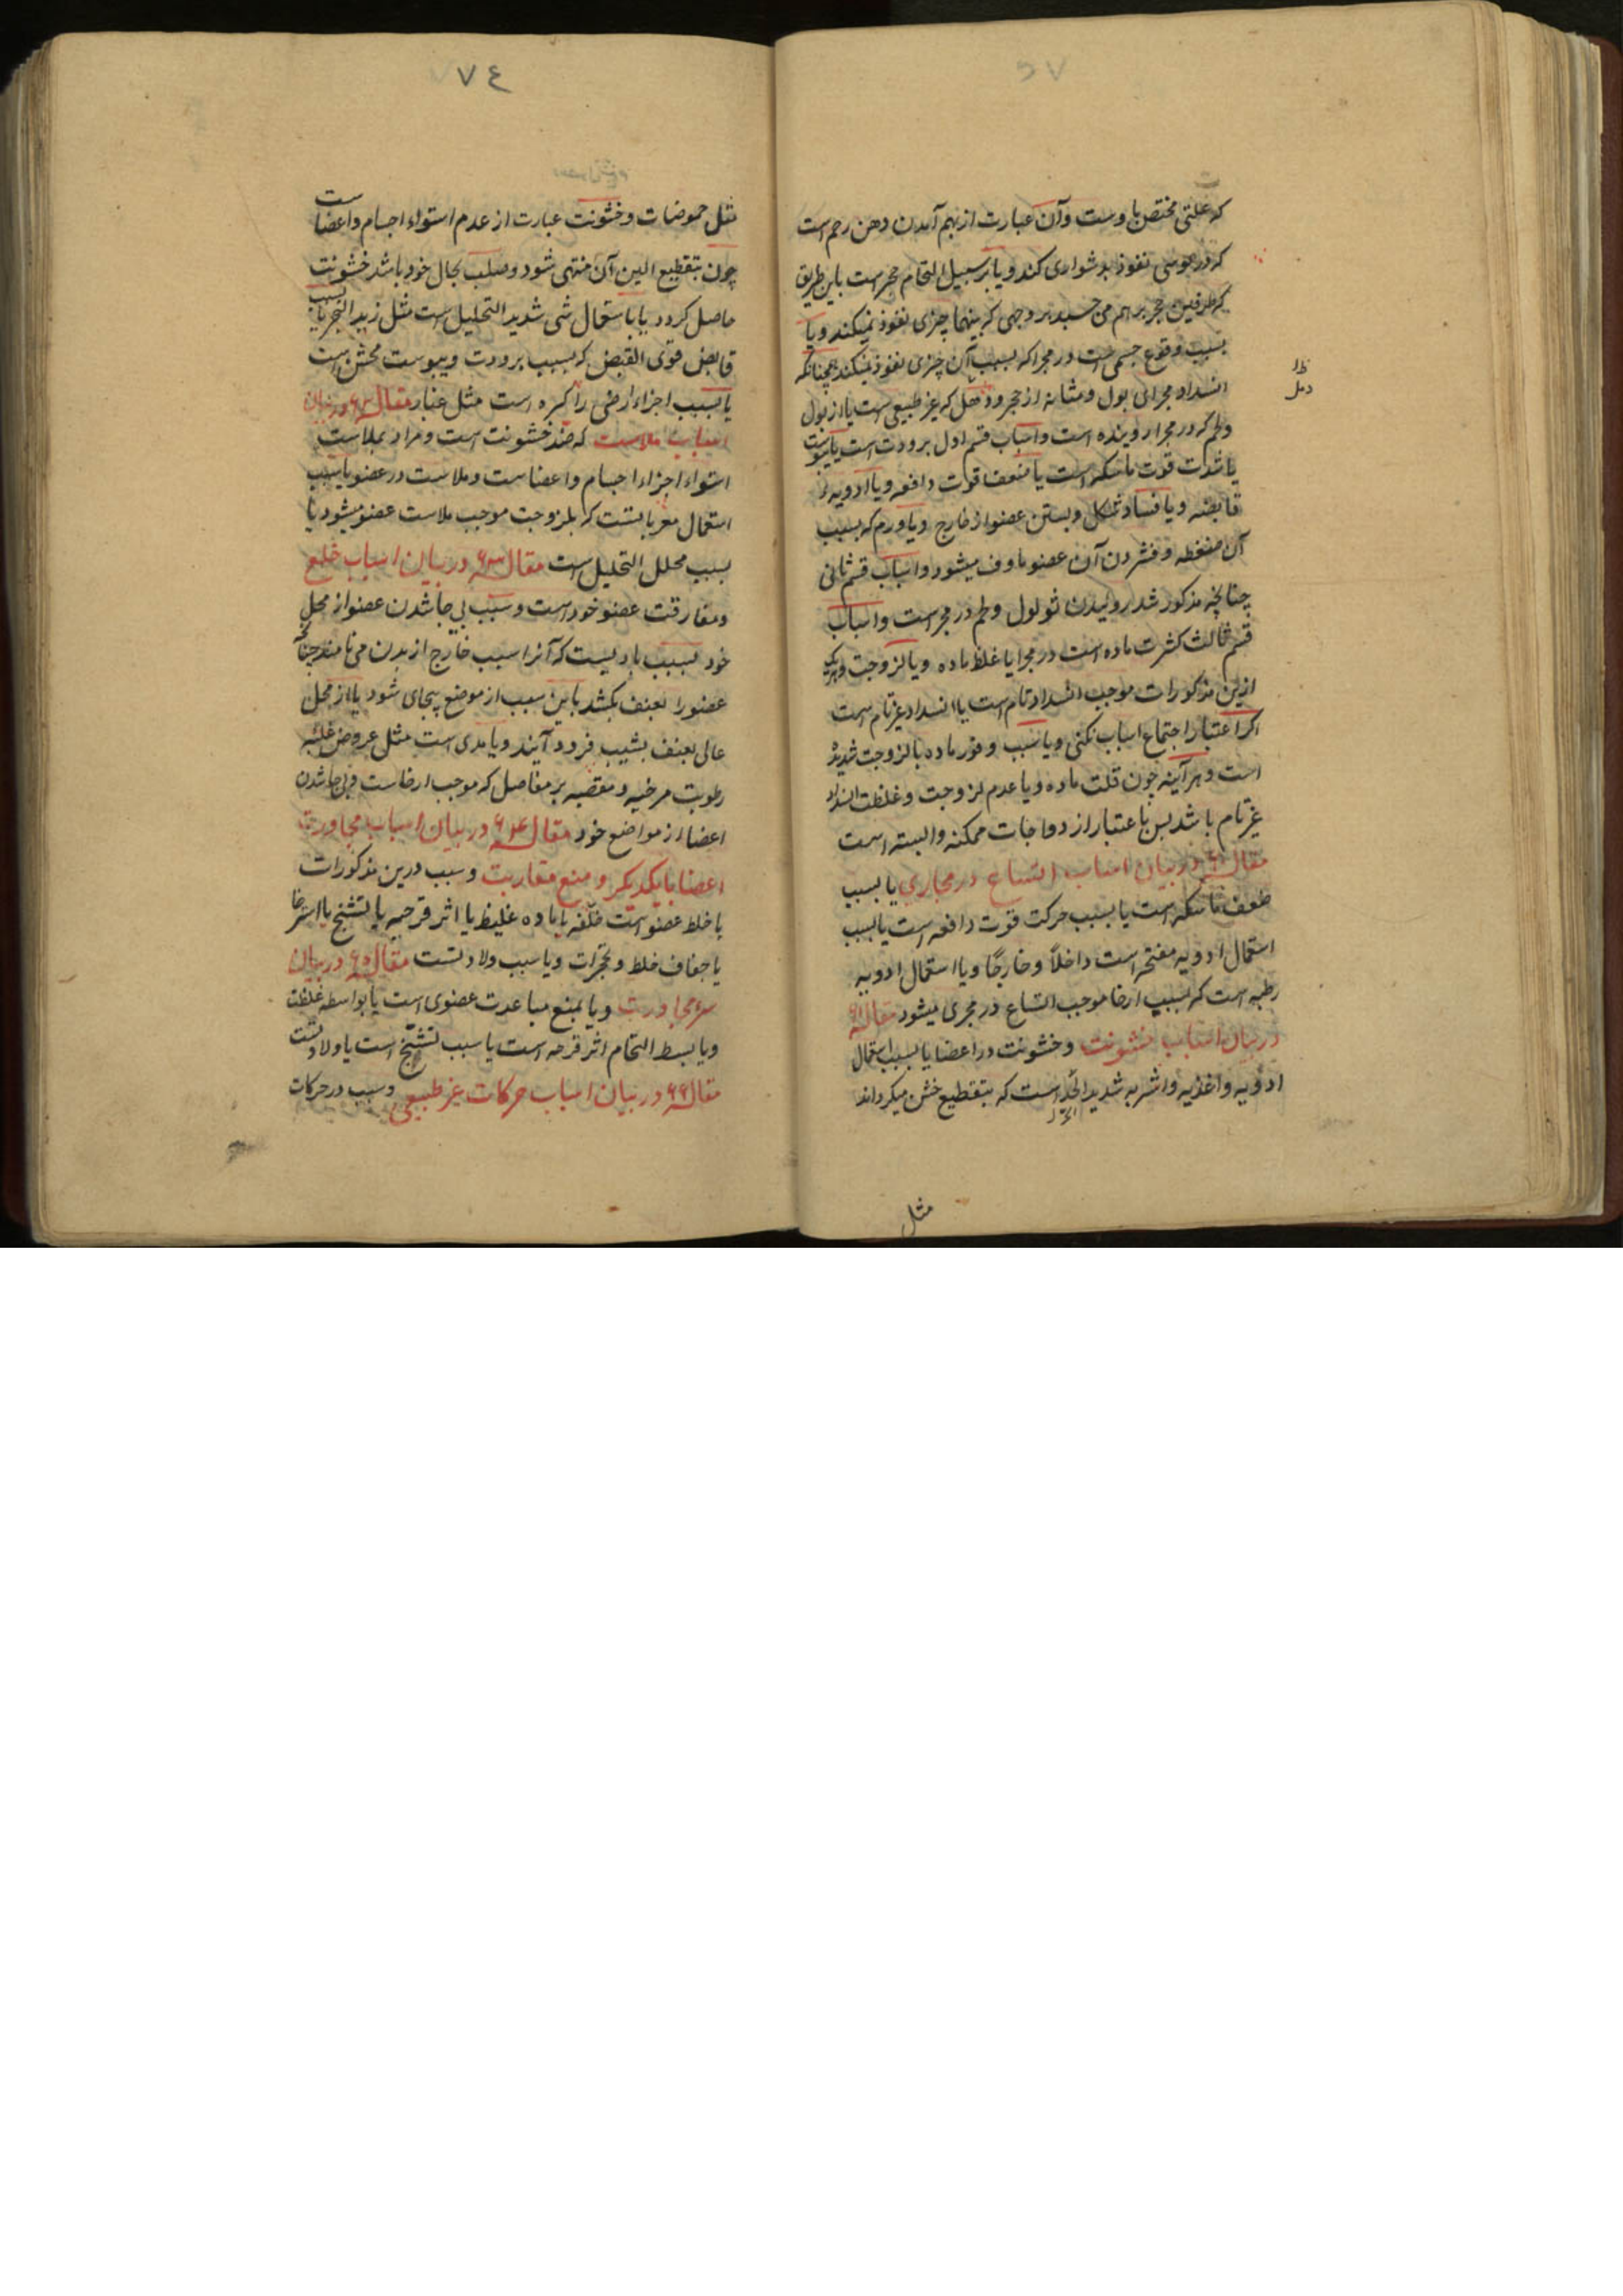 که علتی مختص باوست وآن عبارت از بهم آمدن دهن رحم است
که در موسی نفوذ بدشواری کند ویا بر سبیل التحام مجر است باین طریق
که طرفین مجر برهم می‌چسبد بر وجهی که بینهما چیزی نفوذ نمیکند ویا
بسبب وقوع جسمی است در مجرا که بسبب آن چیزی نفوذ نمیکند همچنانکه
انسداد مجرای بول ومثانه از حجر و که غیر طبیعی است یا از بول
ولحم که در مجرا روینده است واسباب قسم اول برودت است یا یبوست
یا شدت قوت ماسکه است یا ضعف قوت دافعه ویا ادویهٔ
قابضه ویا فساد شکل وبستن عضو از خارج ویا ورم که بسبب
آن منضغطه وفشردن آن عضو ماوف میشود واسباب قسم ثانی
چنانچه مذکور شد روئیدن ثولول ولحم در مجراست واسباب
قسم ثالث کثرت ماده است در مجرا یا غلظ ماده ویا لزوجت وهریک
ازین مذکورات موجب انسداد تام است یا انسداد غیر تام است
اکر اعتبار اجتماع اسباب نکنی ویا سبب وفور ماده با لزوجت شدیدهٔ
است وهر آینه چون قلت ماده ویا عدم لزوجت وغلظت انسداد
غیر تام باشد پس باعتبار ازدواجات ممکنه وابسته است
مقاله ۶۱ در بیان اسباب اتساع در مجاری یا بسبب
ضعف ماسکه است یا بسبب حرکت قوت دافعه است یا بسبب
استعمال ادویه مفتحه است داخلاً وخارجًا ویا استعمال ادویه
رطبه است که بسبب ارخا موجب اتساع در مجری میشود مقاله
در بیان اسباب خشونت وخشونت در اعضا یا بسبب استعمال
ادویه واغذیه واشربه شدید است که بتقطیع خشن میکرداند
مثل
۷۴
مثل حموضات وخشونت عبارت از عدم استواء اجسام واعضا ست
چون بتقطیع الین آن منتهی شود وصلب بحال خود باشد خشونت
حاصل کردد یا باستعمال شی شدید التحلیل است مثل زبد البحر یا بسبب
قابض قوی القبض که بسبب برودت ویبوست مخشن است
یا بسبب اجزاء ارضی راکبره است مثل غبار مقاله در بیان
اسباب ملاست که ضد خشونت است ومراد بملاست
استواء اجزاء اجسام واعضاست وملاست در عضو یا بسبب
استعمال که بلزوجت موجب ملاست عضو میشود یا
بسبب محلل التحلیل است مقاله ۶۳ در بیان اسباب خلع
ومفارقت عضو خود است وسبب بی جا شدن عضو از محل
خود بسبب بادیست که آنرا سبب خارج از بدن می نامند چنانچه
عضو را بعنف بکشد باین سبب از موضع بیجای شود یا از محل
عالی بعنف بشیب فرود آیند ویا بدی است مثل عروض غلبه
رطوبت مرخیه بر مفاصل که موجب ارخاست وبی جا شدن
اعضا از مواضع خود مقاله ۶۴ در بیان اسباب مجاورت
اعضا بایکدیکر ومنع مقاربت وسبب درین مذکورات
یا خلط عضو است خلقه یا ماده غلیظ یا اثر قرحه یا تشنج یا استرخا
یا جفاف خلط وتحجرات ویا سبب ولادتست مقاله ۶۵ در بیان
سوء مجاورت ویا بمنع مباعدت عضوی است یا بواسطه غلظت
ویا بسبط التحام اثر قرحه است یا سبب تشنج است یا ولادتست
مقاله ۶۶ در بیان اسباب حرکات غیر طبیعی وسبب در حرکات